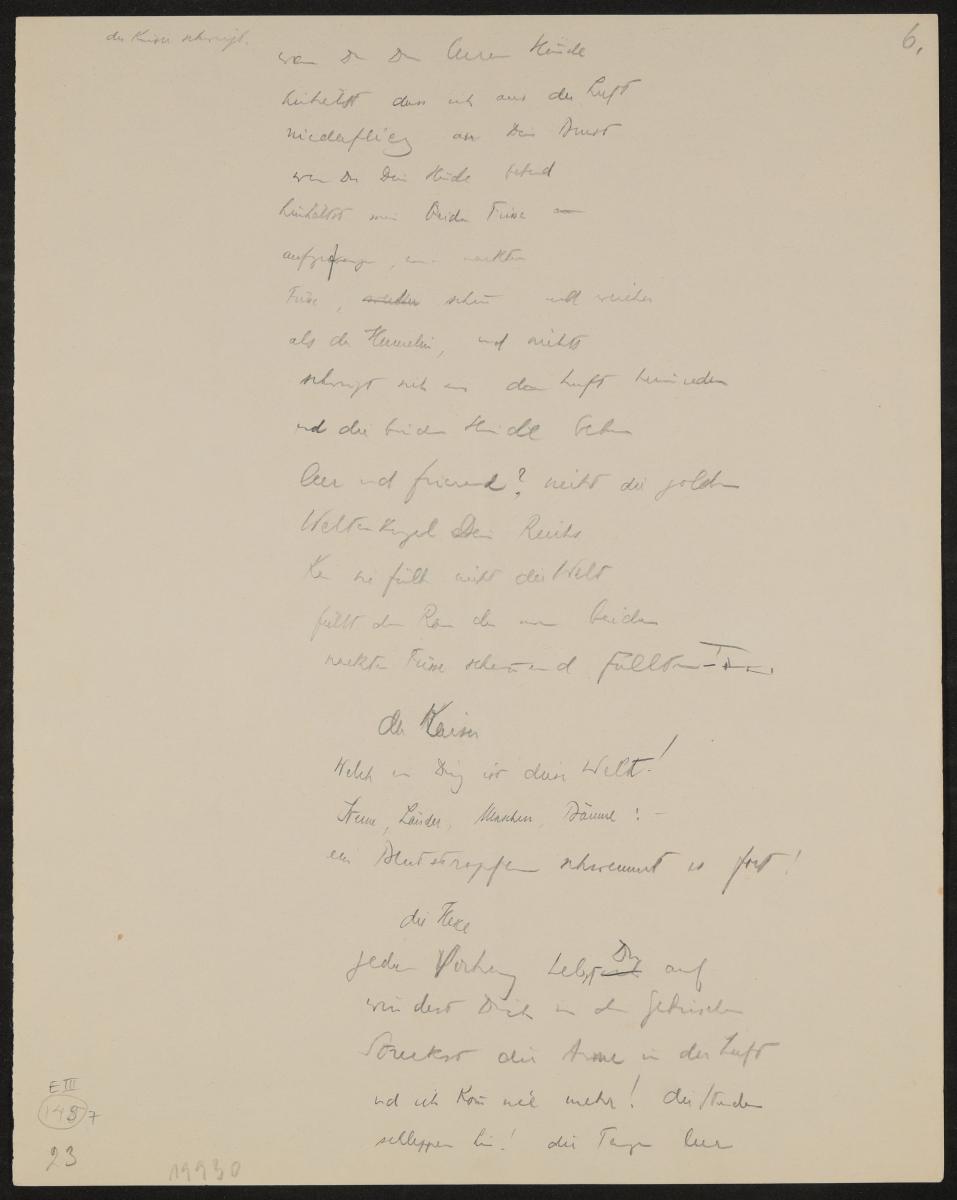 der Kaiser schweigt.
6.
wenn Du Deine leeren Hände
hinhältst dass ich aus der Luft
niederfliege an Deine Brust
wenn Du Deine Hände betend
hinhältst meine beiden Füsse —
aufzufangen, meine nackten
Füsse, schön und weicher
als der Hermelin, und nichts
schwingt sich aus der Luft hernieder
und die beiden Hände beben
leer und frierend? nicht die goldene
Weltenkugel Deines Reichs
Kein sie füllt nicht die Welt
füllt den Raum den meine beiden
nackten Füsse schwebend füllten
der Kaiser
Welch ein Ding ist diese Welt!
Sterne, Länder, Menschen, Bäume: –
ein Blutstropfen schwemmt es fort!
die Hexe
jeden Vorhang hebst Du auf
windest Dich in den Gebüschen
Streckst die Arme in die Luft
und ich komm nie mehr! die Stunden
schleppen hin! die Tage leer
E III
1487
23
19930